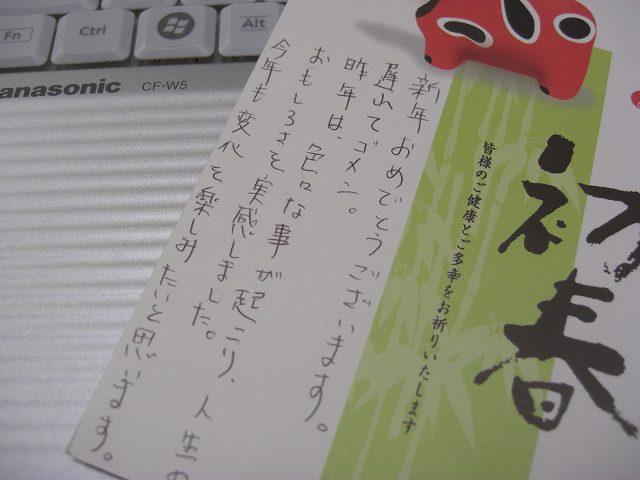 Fn
Ctrl
Alt
Panasonic
CF-W5
初春
皆様のご健康とご多幸をお祈りいたします
新年おめでとうございます。
遅れてゴメン。
昨年は、色々な事が起こり、人生の
おもしろさを実感しました。
今年も変化を楽しみたいと思います。